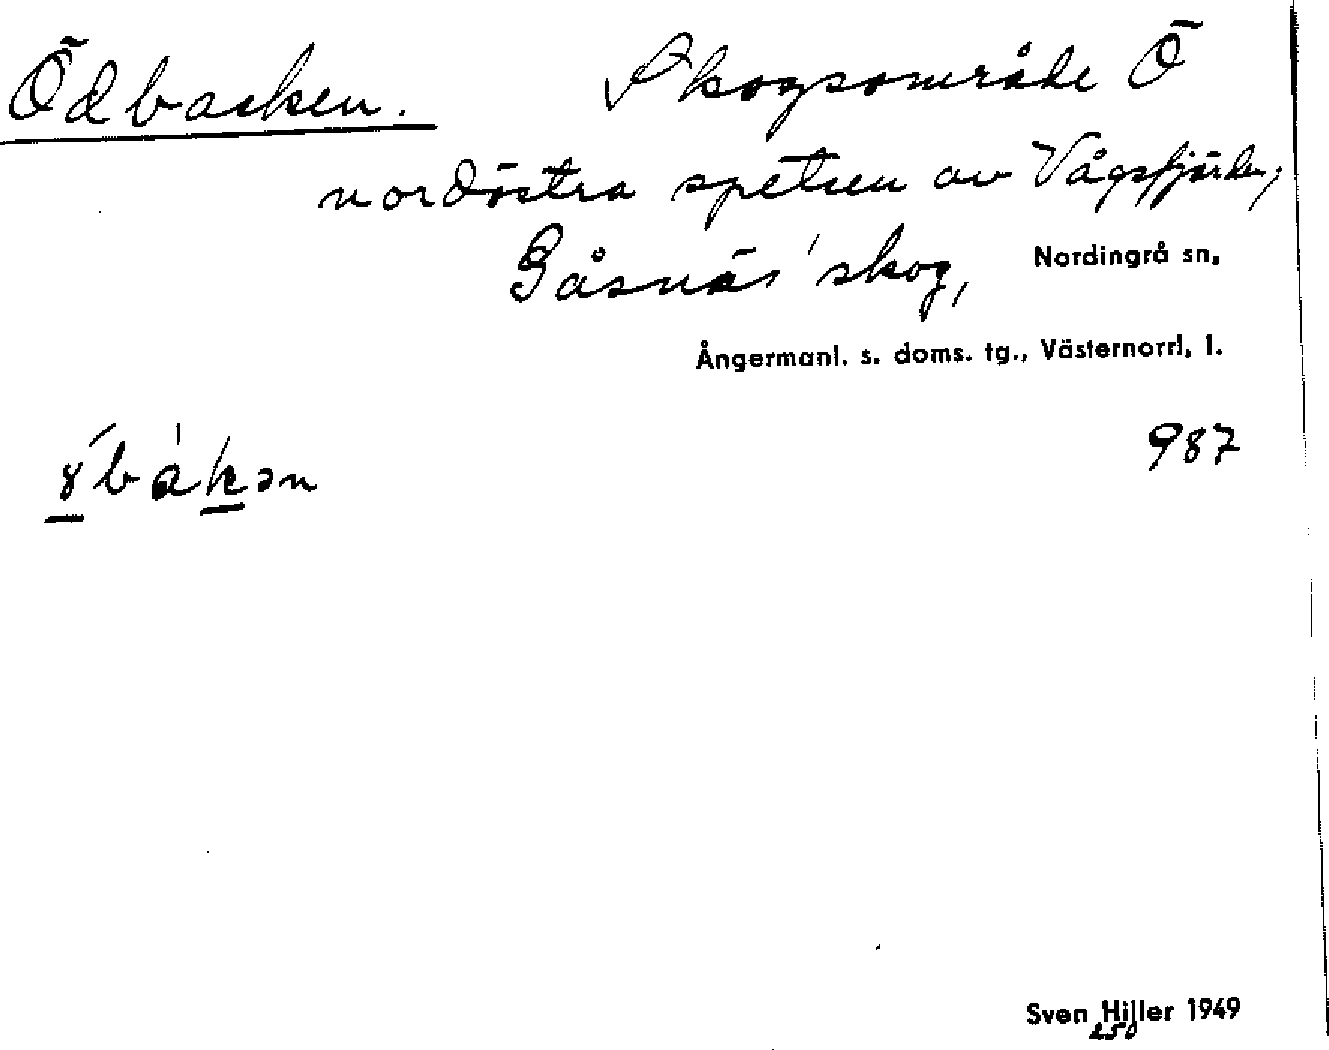 Ödbacken. Skogsområde Ö
nordöstra spetsen av Vågsfjärden,
Gåsnäs' skog, Nordingrå sn,
Ångermanl. s. doms. tg., Västernorrl. l.
987
Sven Hiller 1949
250